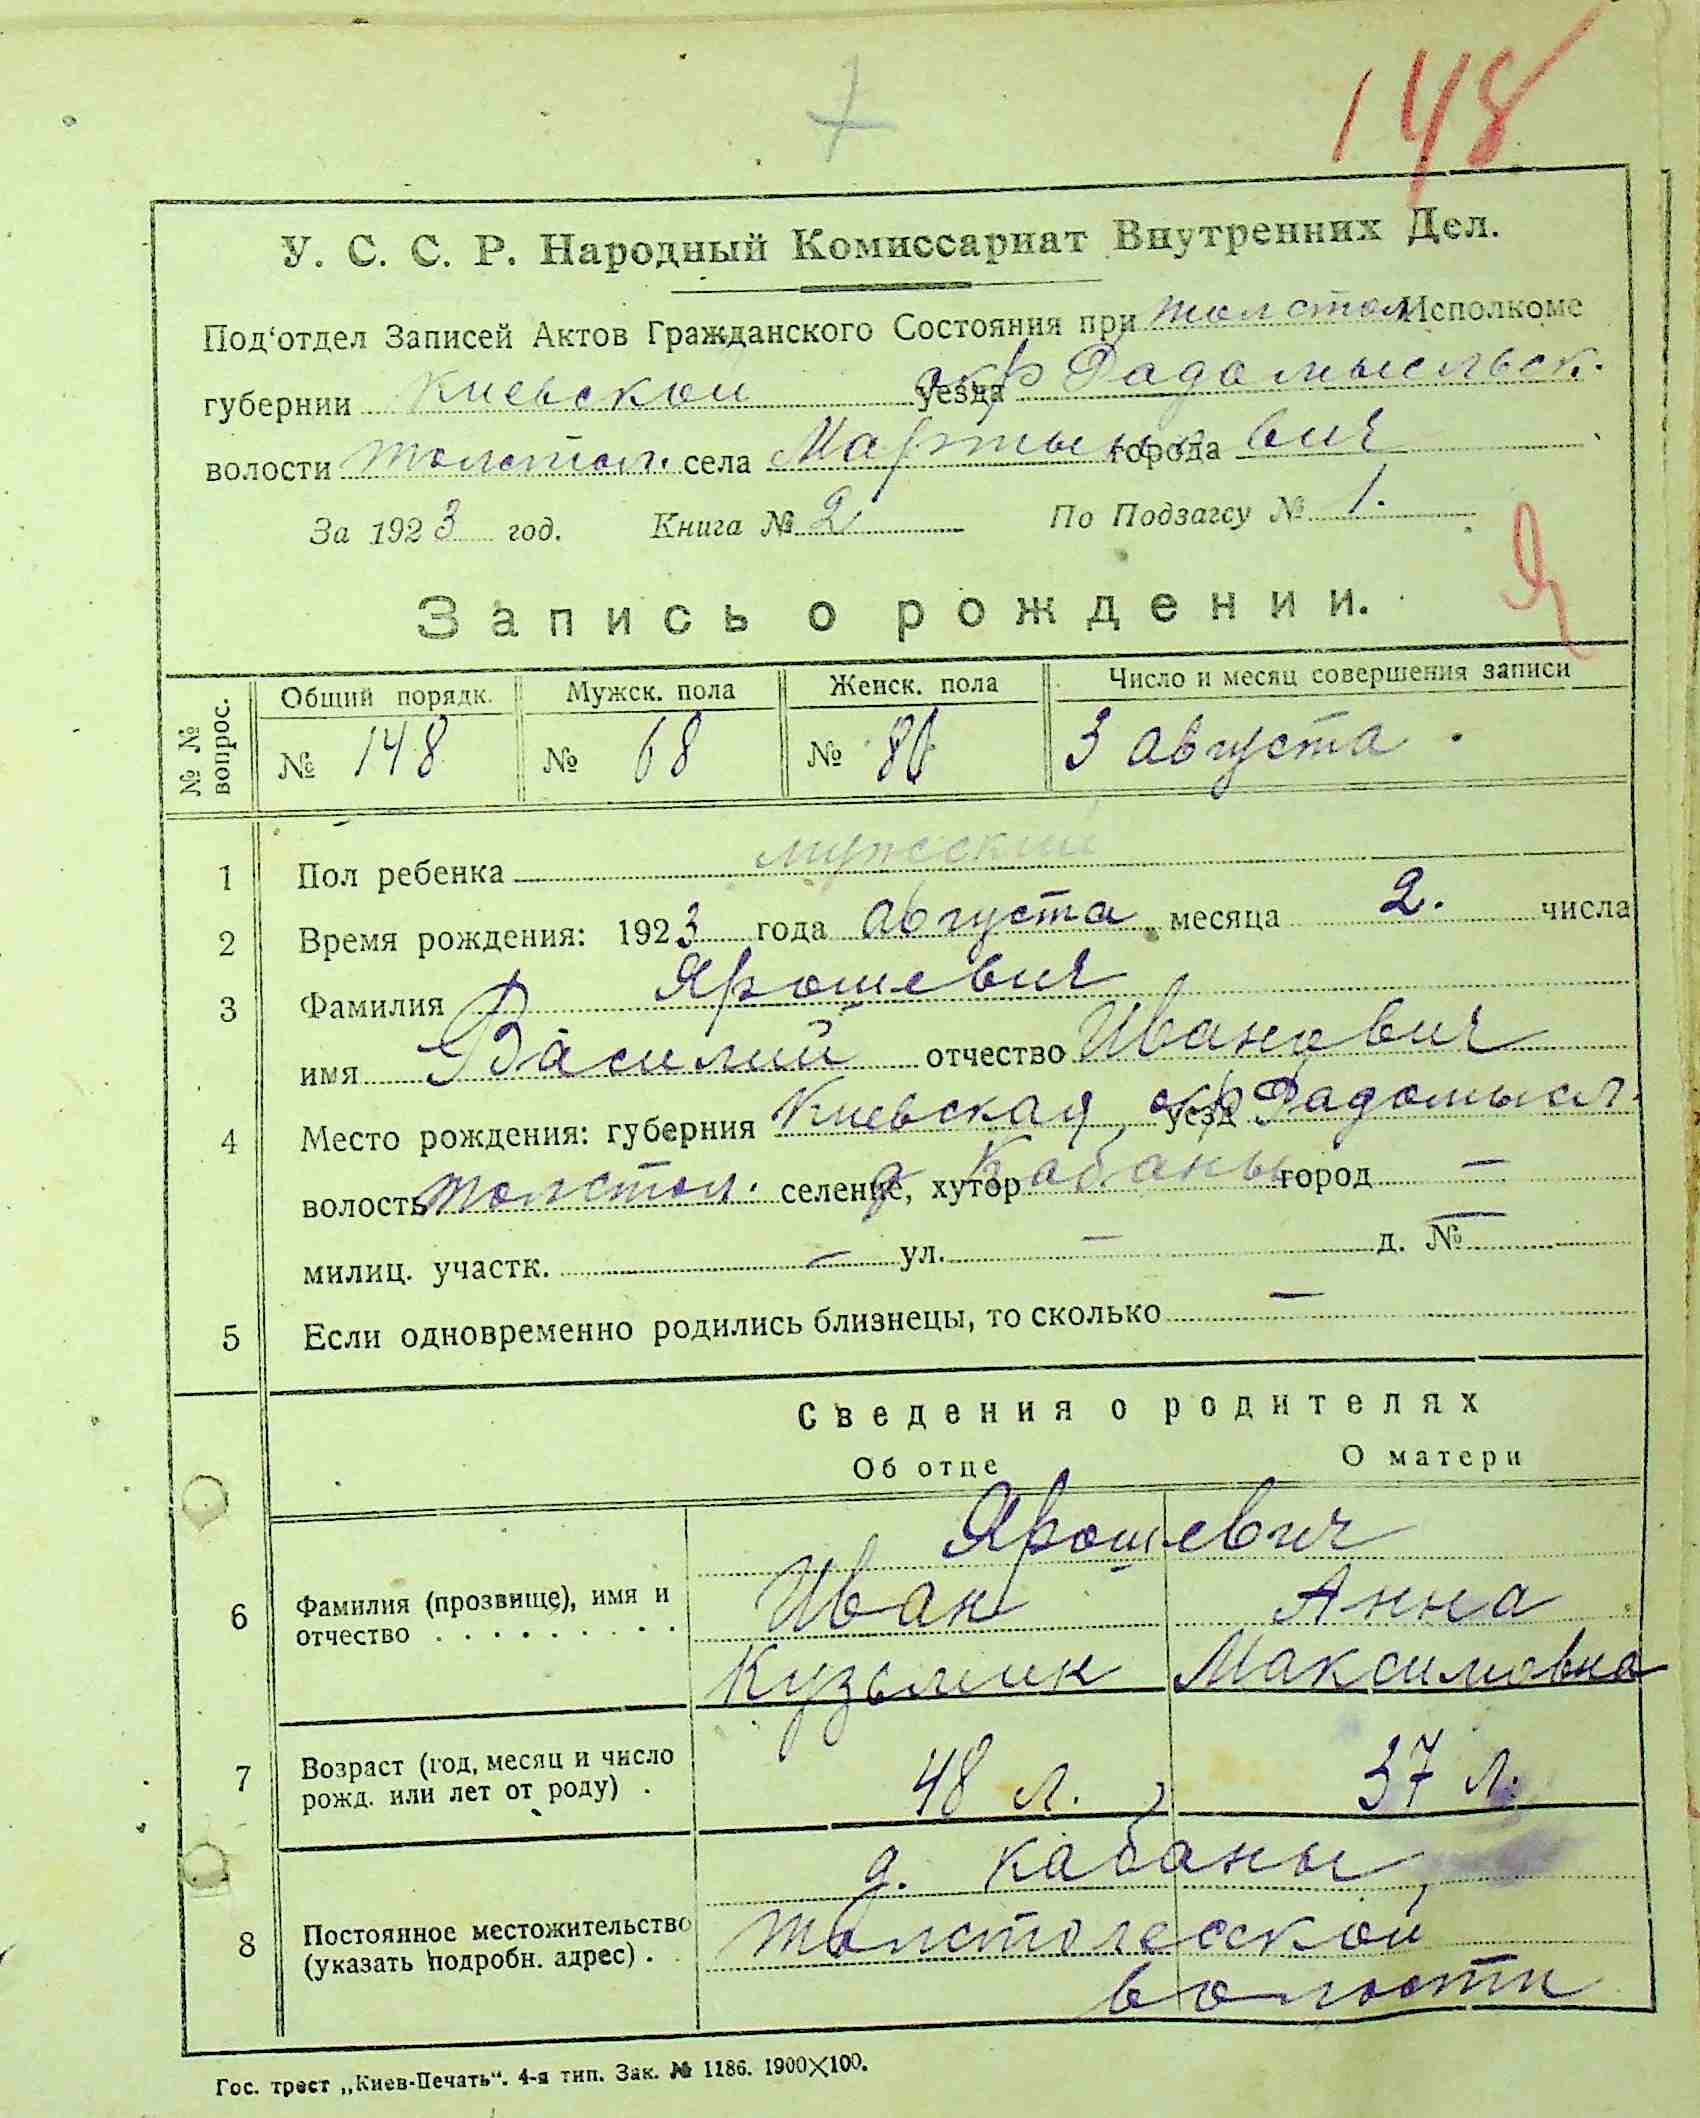 148
У. С. С. Р. Народный Комиссариат Внутренних Дел.
Под'отдел Записей Актов Гражданского Состояния при Толстол Исполкоме
губернии Киевской уезда окр Радомысльск.
волости Толстол. села Мартынови города вич
За 1923 год. Книга № 2 По Подзагсу № 1.
Я
Запись о рождении.
№ № вопрос. Общий порядк. Мужск. пола Женск. пола Число и месяц совершения записи
№ 148 № 68 № 80 3 августа.
1 Пол ребенка мужский
2 Время рождения: 1923 года августа месяца 2. числа
3 Фамилия Ярошевич
имя Василий отчество Иванович
4 Место рождения: губерния Киевская, уезд окр Радомысл.
волость Толстол. селение, хутор д Кабаны город —
милиц. участк. — ул. — д. № —
5 Если одновременно родились близнецы, то сколько —
Сведения о родителях
Об отце О матери
Ярошевич
6 Фамилия (прозвище), имя и Иван Анна
отчество . . . . . . . . . Кузьмин Максимовна
7 Возраст (год, месяц и число
рожд. или лет от роду) . 48 л. 37 л.
д. Кабаны,
8 Постоянное местожительство Толстолесской
(указать подробн. адрес) . волости
Гос. трест „Киев-Печать“. 4-я тип. Зак. № 1186. 1900×100.